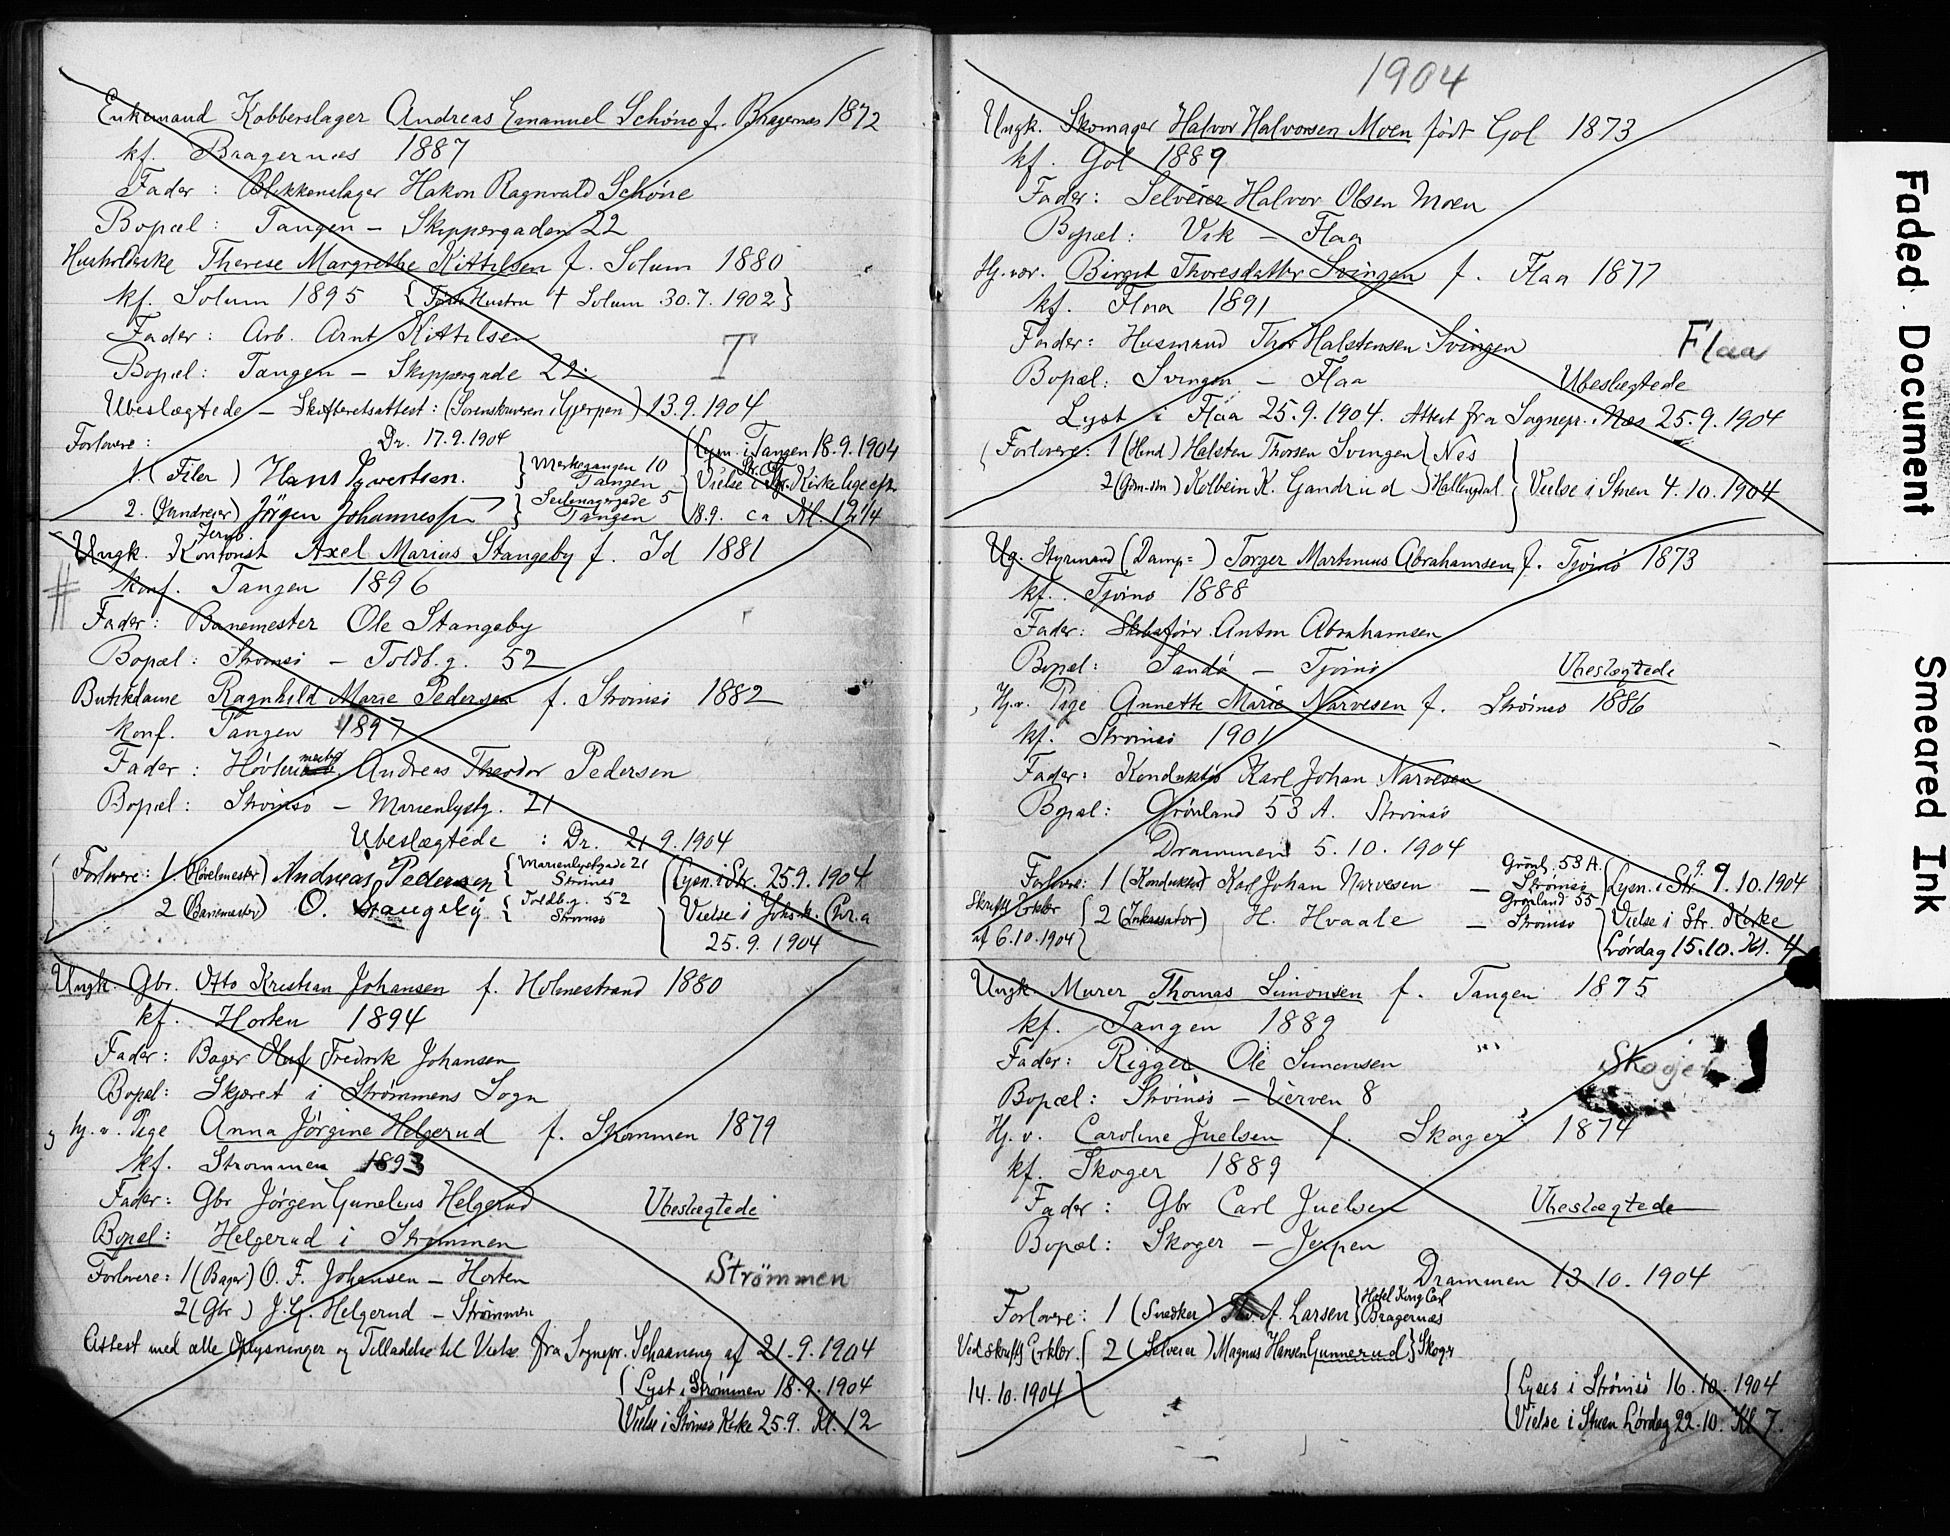 Enkemand Kobberslager Andreas Emanuel Schöne f. Bragernæs 1872
kf. Bragernæs 1887
Fader: Blikkenslager Hakon Ragnvald Schöne
Bopæl: Tangen – Skippergaden 22
Therese Margrethe Kittilsen f. Solum 1880
kf. Solum 1895 { Hustru † Solum 30.7.1902 }
Fader: Arb. Arnt Kittilsen
T
Bopæl: Tangen – Skippergade 22
Ubeslægtede – Skifteretsattest: (Sorenskriveren i Gjerpen) 13.9.1904
Forlovere: Dr. 17.9.1904
1. (Filer) Hans Syvertsen. } Merkegangen 10 Tangen
2. Jörgen Johannessen } Seilmagergade 5 Tangen
{ Lysn. i Tangen 18.9.1904
Vielse i Kirke
18.9. ca Kl. 12 1/4
Ungk. Jernb. Kontorist Axel Marius Stangeby f. Id 1881
#
konf. Tangen 1896
Fader: Banemester Ole Stangeby
Bopæl: Strömsö – Toldb.g. 52
Butikdame Ragnhild Marie Pedersen f. Strömsö 1882
konf. Tangen 1897
Fader: Andreas Theodor Pedersen
Bopæl: Strömsö – Marienlystg. 21
Ubeslægtede : Dr. 21.9.1904
Forlovere: 1. (Hövelmester) Andreas Pedersen { Marienlystgade 21 Strömsö
2 (Banemester) O. Stangeby. { Toldb.g. 52 Strömsö
{ Lysn. i Str. 25.9.1904
Vielse i Johs.k. Chr.a
25.9.1904
Ungk. Gbr. Otto Kristian Johansen f. Holmestrand 1880
kf. Horten 1894
Fader: Bager Oluf Fredrik Johansen
Bopæl: Skjæret i Strömmens Sogn
hj.v. Pige Anna Jörgine Helgerud f. Strömmen 1879
kf. Strömmen 1893
Fader: Gbr Jörgen Gunelius Helgerud Ubeslægtede
Bopæl: Helgerud i Strömmen
Forlovere: 1 (Bager) O. F. Johansen – Horten
Strömmen
2 (Gbr) J. G. Helgerud – Strömmen
Attest med alle Oplysninger og Tilladelse til Vielse fra Sognepr. Schaanning af 21.9.1904
{ Lyst i Strömmen 18.9.1904
Vielse i Strömsö Kirke 25.9. Kl. 12
1904
Ungk. Skomager Halvor Halvorsen Moen födt Gol 1873
kf. Gol 1889
Fader: Selveier Halvor Olsen Moen
Bopæl: Vik – Flaa
Hj.vær. Birgit Thoresdatter Svingen f. Flaa 1877
kf. Flaa 1891
Fader: Husmand Thor Halstensen Svingen
Flaa
Bopæl: Svingen – Flaa Ubeslægtede
Lyst i Flaa 25.9.1904. Attest fra Sognepr. i Næs 25.9.1904
Forlovere: 1 Halsten Thorsen Svingen { Nes
2 Kolbein K. Gandrud } Hallingdal } Vielse i Stuen 4.10.1904
Ug. Styrmand (Damp=) Torger Martinius Abrahamsen f. Tjömö 1873
kf. Tjömö 1888
Fader: Skibsförer Anton Abrahamsen
Bopæl: Sandö – Tjömö Ubeslægtede
Hj.v. Pige Annette Marie Narvesen f. Strömsö 1886
kf. Strömsö 1901
Fader: Konduktör Karl Johan Narvesen
Bopæl: Grönland 53 A. Strömsö
Drammen 5.10.1904
Forlovere: 1 (Konduktör) Karl Johan Narvesen – Grönl. 53 A. Strömsö
Skriftl. Erklær. af 6.10.1904 { 2 (Inkassator) H. Hvaale – Grönland 55 Strömsö
{ Lysn. i Str. 9.10.1904
Vielse i Str. Kirke
Lördag 15.10. Kl. 4
Ungk. Murer Thomas Simonsen f. Tangen 1875
kf. Tangen 1889
Fader: Rigger Ole Simonsen
Skoger
Bopæl: Strömsö – Verven 8
Hj.v. Caroline Juelsen f. Skoger 1874
kf. Skoger 1889
Fader: Gbr Carl Juelsen Ubeslægtede
Bopæl: Skoger – Jerpen
Drammen 13.10.1904
Forlovere: 1 (Snedker) Larsen } Hotel Kung Carl Bragernæs
Ved skriftlg Erklær. { 2 (Selveier) Magnus Hansen Gunnerud } Skoger
14.10.1904
{ Lyses i Strömsö 16.10.1904
Vielse i Stuen Lördag 22.10. Kl 7.
Faded Document
Smeared Ink